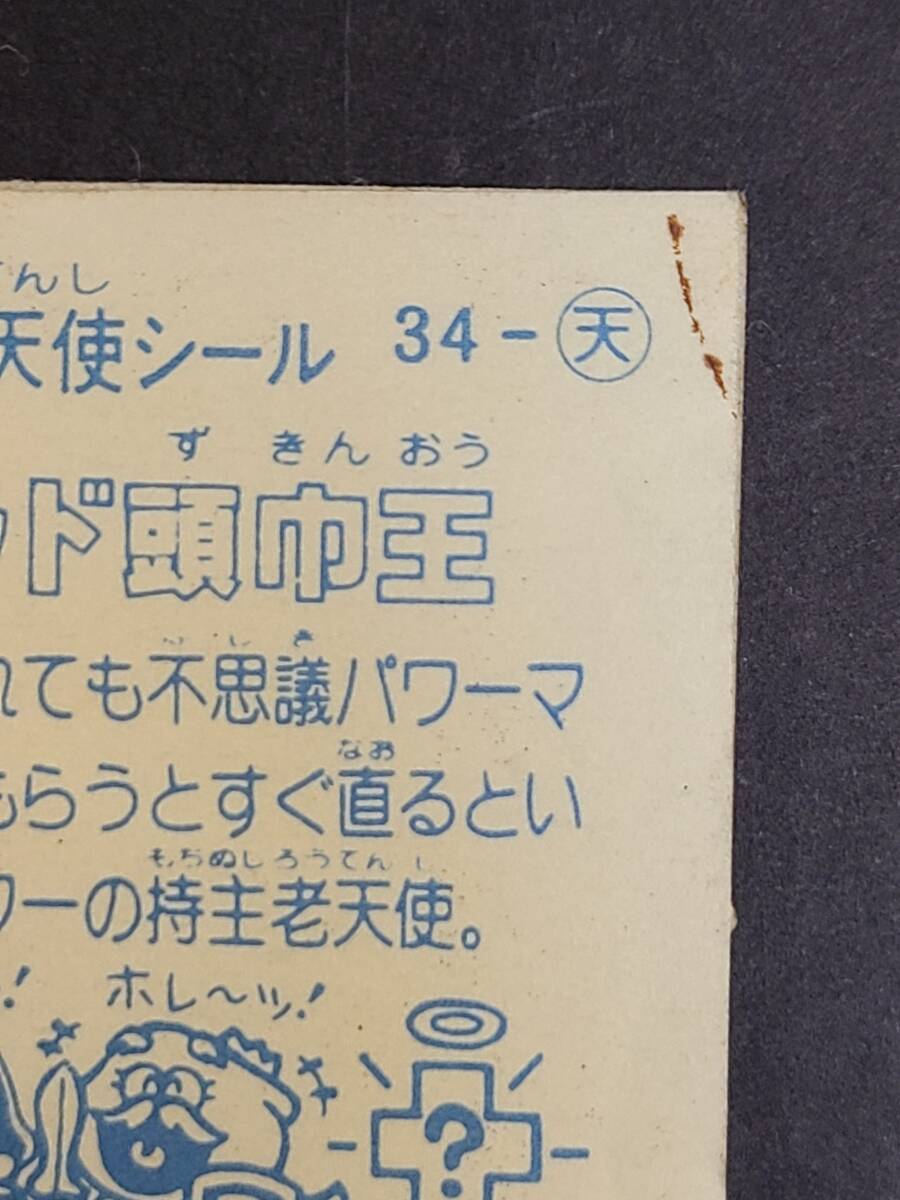 んし
天使シール 34-天
ずきんおう
ッド頭巾王
ふしぎ
れても不思議パワーマ
なお
もらうとすぐ直るとい
もちぬしろうてんし
ワーの持主老天使。
! ホレ〜ッ!
?